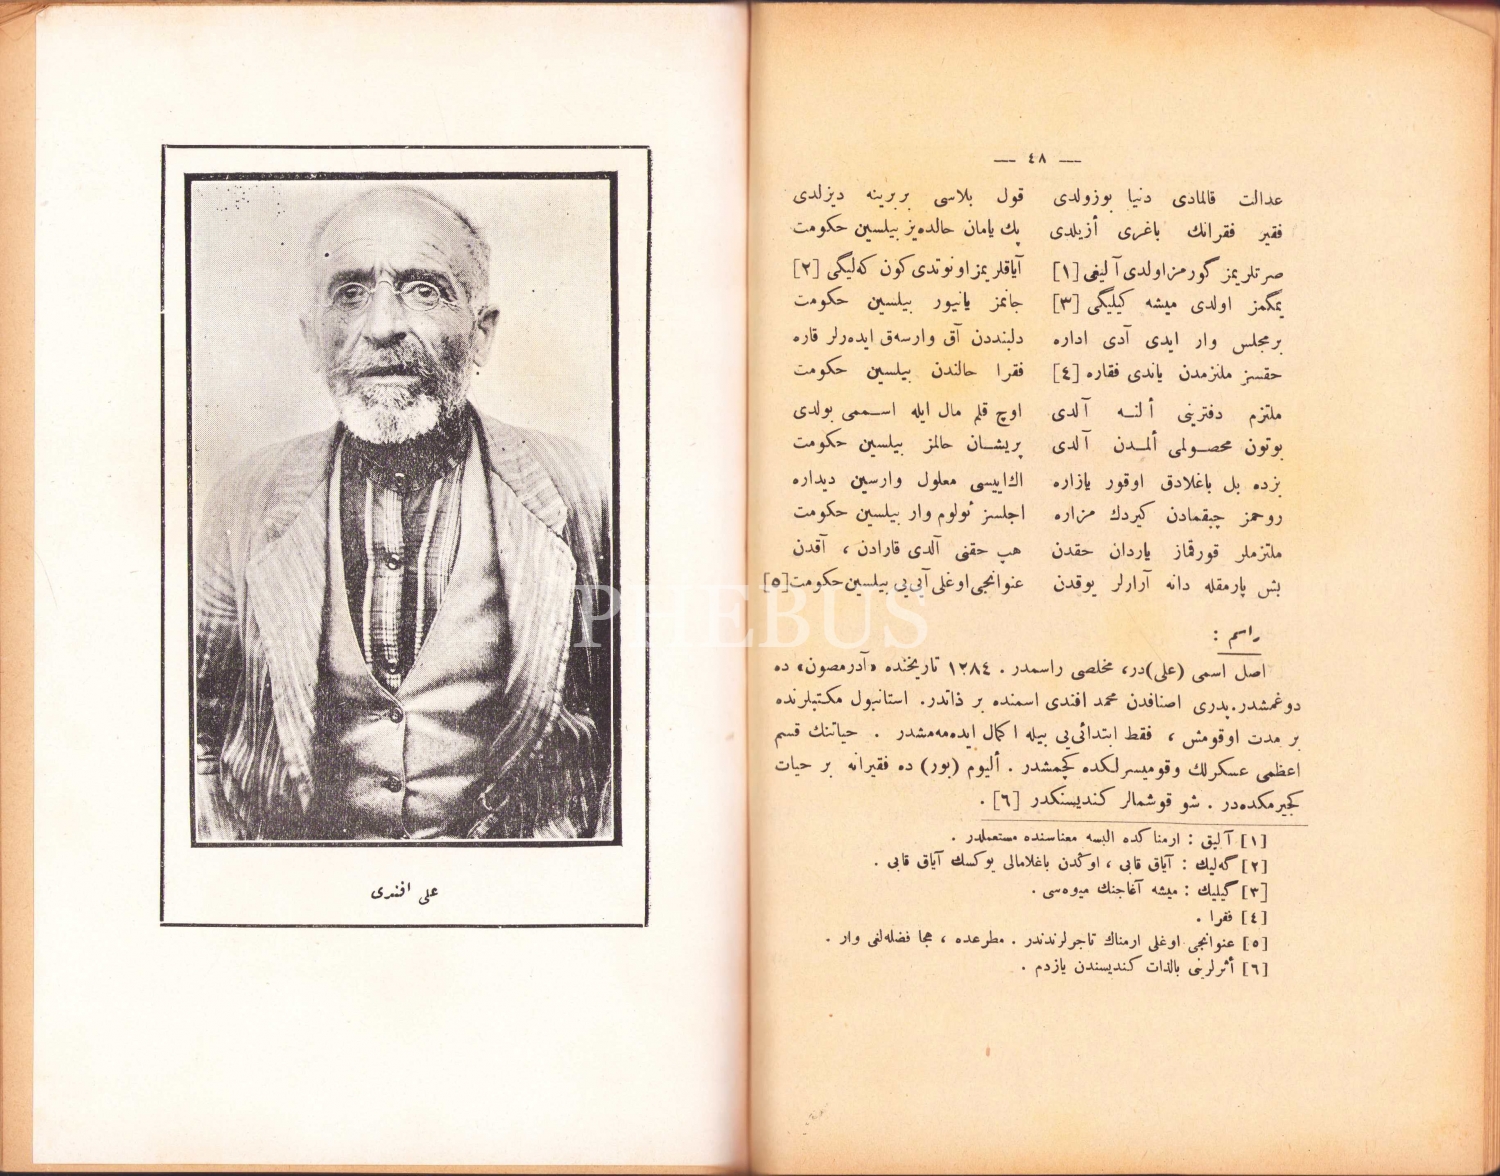 — ٤٨ —
عدالت قالمادی دنیا بوزولدی قول بلاسی بربرینه دیزلدی
فقیر فقرانك باغری أزیلدی پك یامان حالده‌یز بیلسین حكومت
صرتلریمز گورمز اولدی آلیفی [١] آیاقلریمز اونوتدی كون كه‌لیگی [٢]
یمگمز اولدی میشه كیلیگی [٣] جانمز یانیور بیلسین حكومت
برمجلس وار ایدی آدی اداره دلبنددن آق وارسه‌ق ایده‌رلر قاره
حقسز ملتزمدن یاندی فقاره [٤] فقرا حالندن بیلسین حكومت
ملتزم دفترینی أ لنه آلدی اوچ قلم مال ایله اسممی بولدی
بوتون محصولمی ألمدن آلدی پریشان حالمز بیلسین حكومت
بزده بل باغلادق اوقور یازاره اك‌اییسی معلول وارسین دیداره
روحمز چیقمادن كیردك مزاره اجلسز ئولوم وار بیلسین حكومت
ملتزملر قورقماز یاردان حقدن هپ حقنی آلدی قارادن ، آقدن
بش پارمقله دانه آرارلر یوقدن عنوانجی‌اوغلی آبی‌یی بیلسین‌حكومت[٥]
راسم :
اصل اسمی (علی)در، مخلصی راسمدر . ١٢٨٤ تاریخنده «آدرمصون» ده
دوغمشدر.پدری اصنافدن محمد افندی اسمنده بر ذاتدر. استانبول مكتبلرنده
بر مدت اوقومش ، فقط ابتدائی‌یی بیله اكمال ایده‌مه‌مشدر . حیاتنك قسم
اعظمی عسكرلك وقومیسرلكده كچمشدر . ألیوم (بور) ده فقیرانه بر حیات
كچیرمكده‌در . شو قوشمالر كندیسنكدر [٦] .
[١] آلیق : ارمناكده البسه معناسنده مستعملدر .
[٢] گه‌لیك : آیاق قابی ، اوكدن باغلامالی یوكسك آیاق قابی .
[٣] گیلیك : میشه آغاجنك میوه‌سی .
[٤] فقرا .
[٥] عنوانجی اوغلی ارمناك تاجرلرندندر . مطرعده ، هجا فضله‌لغی وار .
[٦] أثرلرینی بالذات كندیسندن یازدم .
علی افندی
PHEBUS